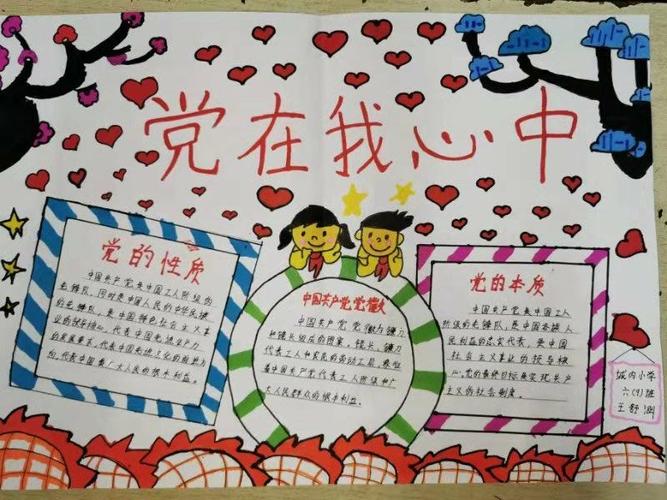 党在我心中
党的性质
中国共产党是中国工人阶级的
先锋队，同时是中国人民的中华民族
的先锋队，是中国特色社会主义事
业的领导核心，代表中国先进生产力
的发展要求，代表中国先进文化的前进方
向，代表中国最广大人民的根本利益。
中国共产党党徽
中国共产党党徽为镰刀
和锤头组成的图案，锤头、镰刀
代表工人和农民的劳动工具，
着中国共产党代表工人阶级和广
大人民群众的根本利益。
党的本质
中国共产党是中国工人
阶级的先锋队，是中国各族人
民利益的忠实代表，是中国
社会主义事业的领导核
心。党的最终目标是实现共产
主义的社会制度。
城内小学
六(9)班
王舒